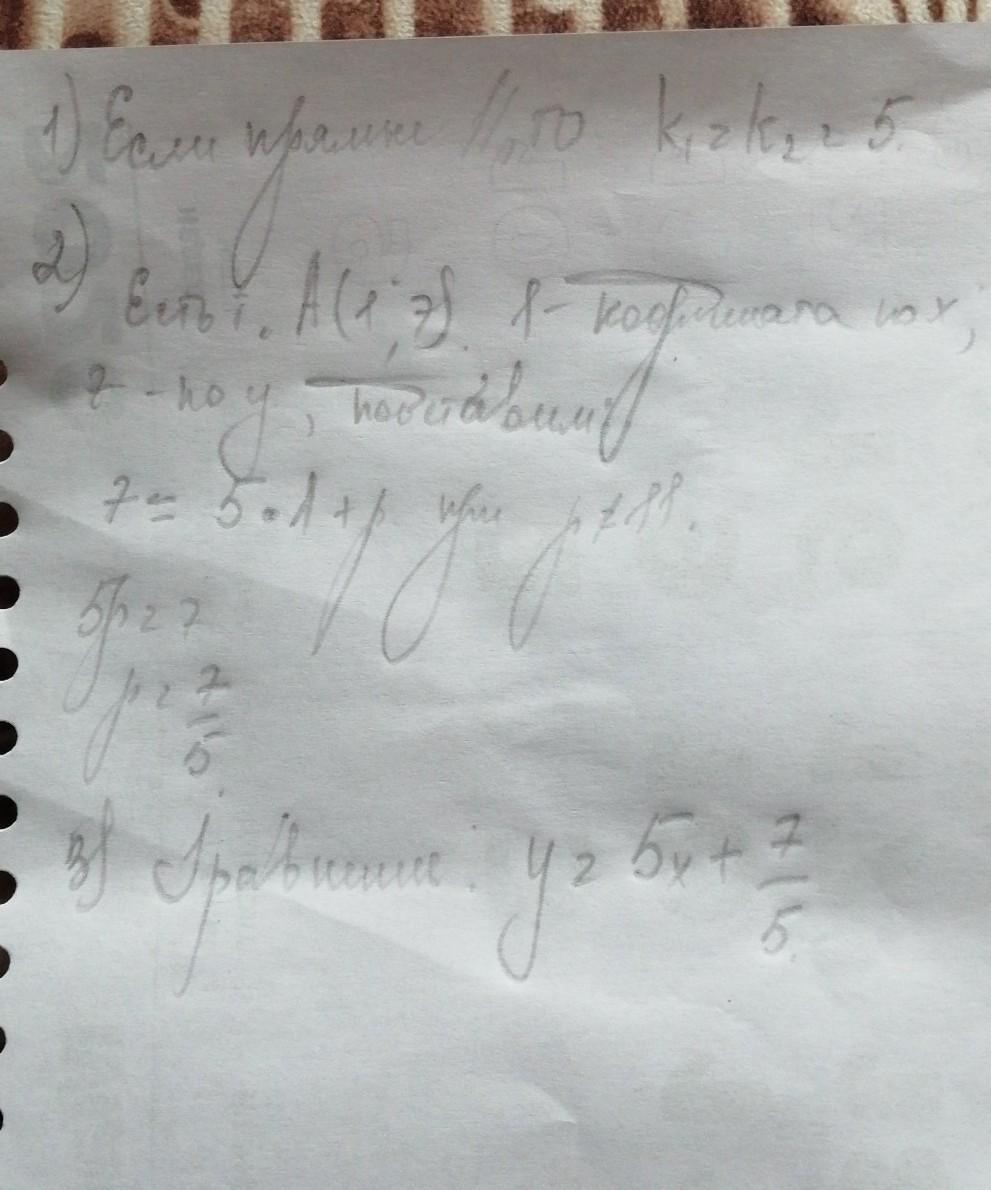 1) Если прямые ||, то k₁ = k₂ = 5.
2) Есть т. A(1; 7). 1 - координата по x;
7 - по y, подставим:
7 = 5 · 1 + p при p ≠ 11.
5p = 7
p = 7/5.
3) Уравнение: y = 5x + 7/5.